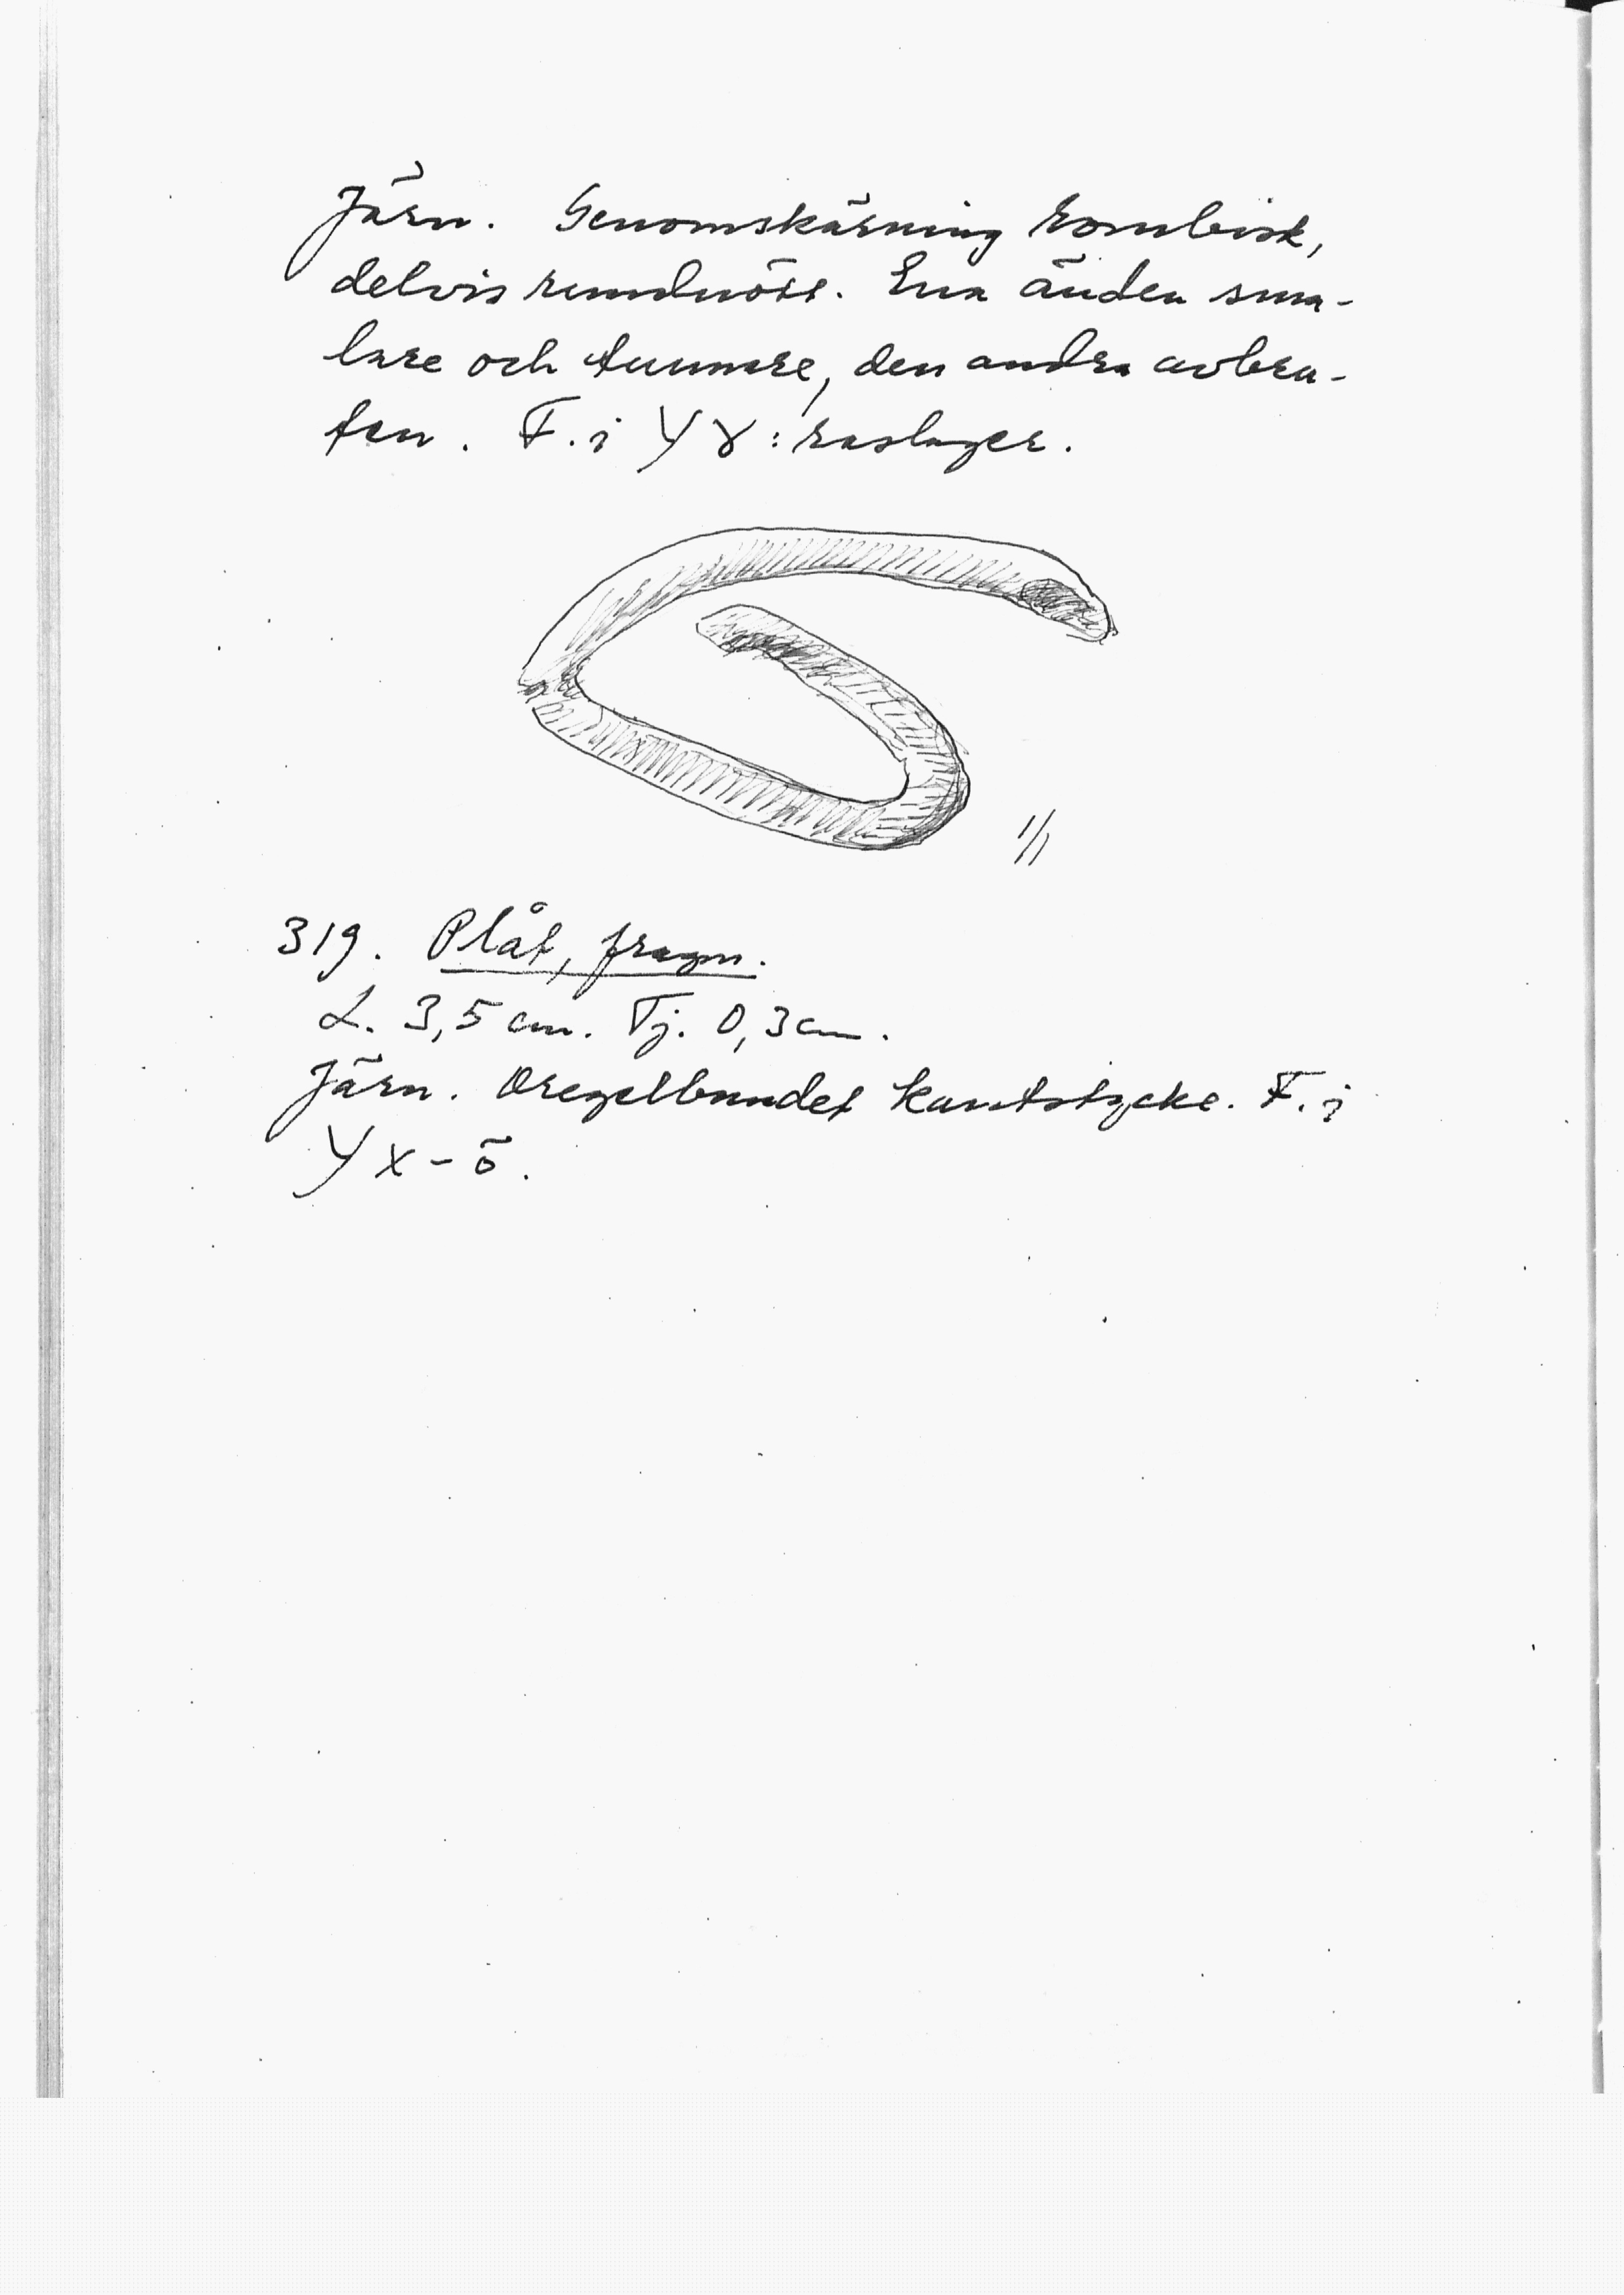 Järn. Genomskärning rombisk,
delvis rundnött. Ena änden sma-
lare och tunnare, den andra avbru-
ten. F. i Y γ: raslager.
1/1
319. Plåt, fragm.
L. 3,5 cm. Tj. 0,3 cm.
Järn. Oregelbundet kantstycke. F. i
Y X - ö.